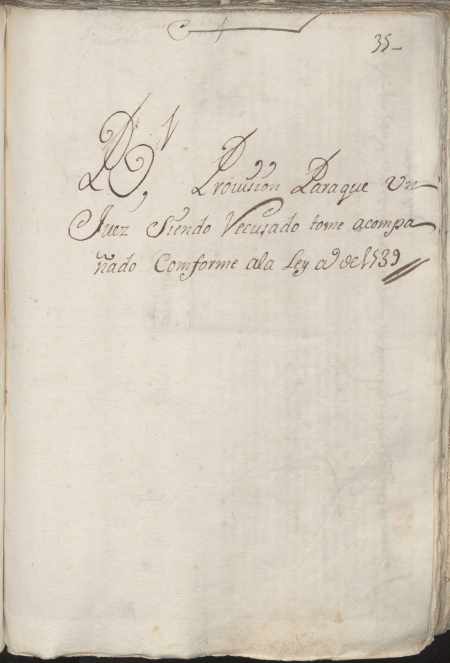 35-
Rl Provission Paraque Vn
Juez Siendo Recusado tome acompa
ñado Comforme ala Ley aº de 1539